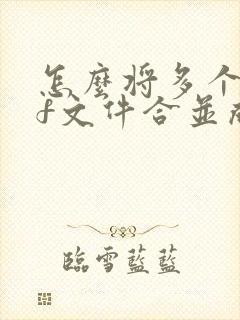 怎麼将多个
f文件合並
臨雪藍藍